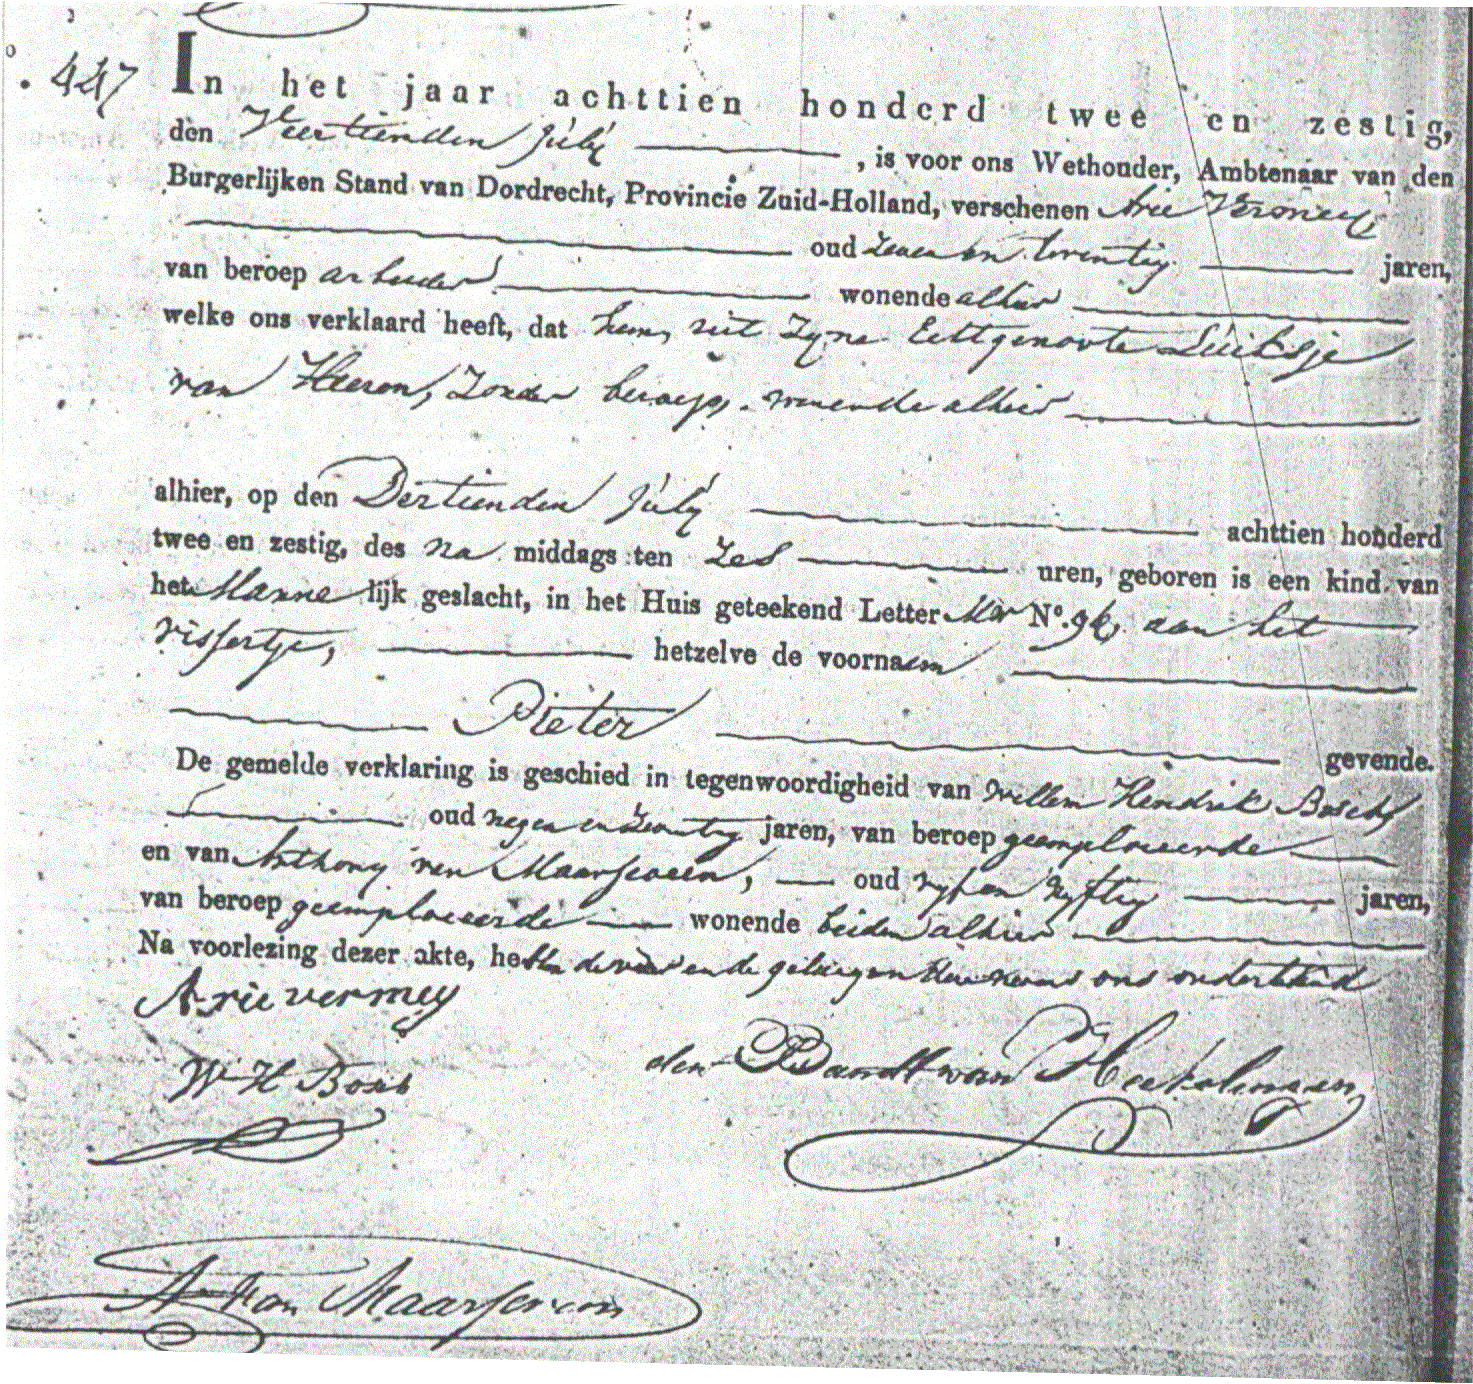 447 In het jaar achttien honderd twee en zestig,
den Veertienden Julij, is voor ons Wethouder, Ambtenaar van den
Burgerlijken Stand van Dordrecht, Provincie Zuid-Holland, verschenen Arie Vermey
oud zeven en twintig jaren,
van beroep arbeider wonende alhier
welke ons verklaard heeft, dat hem, uit Zyne Echtgenoote Luitsje
van Heeren, Zonder beroep, wonende alhier
alhier, op den Dertienden Julij achttien honderd
twee en zestig, des na middags ten zes uren, geboren is een kind van
het Mannelijk geslacht, in het Huis geteekend Letter No. aan het
vissertje, hetzelve de voornaam
Pieter gevende.
De gemelde verklaring is geschied in tegenwoordigheid van Willem Hendrik Bosch
oud negen en twintig jaren, van beroep geemploieerde
en van Anthony van Maarseveen, oud vyf en vyftig jaren,
van beroep geemploieerde wonende beiden alhier
Na voorlezing dezer akte, hebben de vader en de getuigen nevens ons onderteekend
Arie vermey
W H Bosch
den van
A van Maarseveen